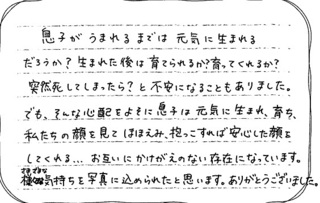 息子がうまれるまでは 元気に生まれる
だろうか？生まれた後は育てられるか？育ってくれるか？
突然死してしまったら？と不安になることもありました。
でも、そんな心配をよそに息子は元気に生まれ、育ち、
私たちの顔を見てほほえみ、抱っこすれば安心した顔を
してくれる… お互いにかけがえのない存在になっています。
さまざまな
気持ちを写真に込められたと思います。ありがとうございました。